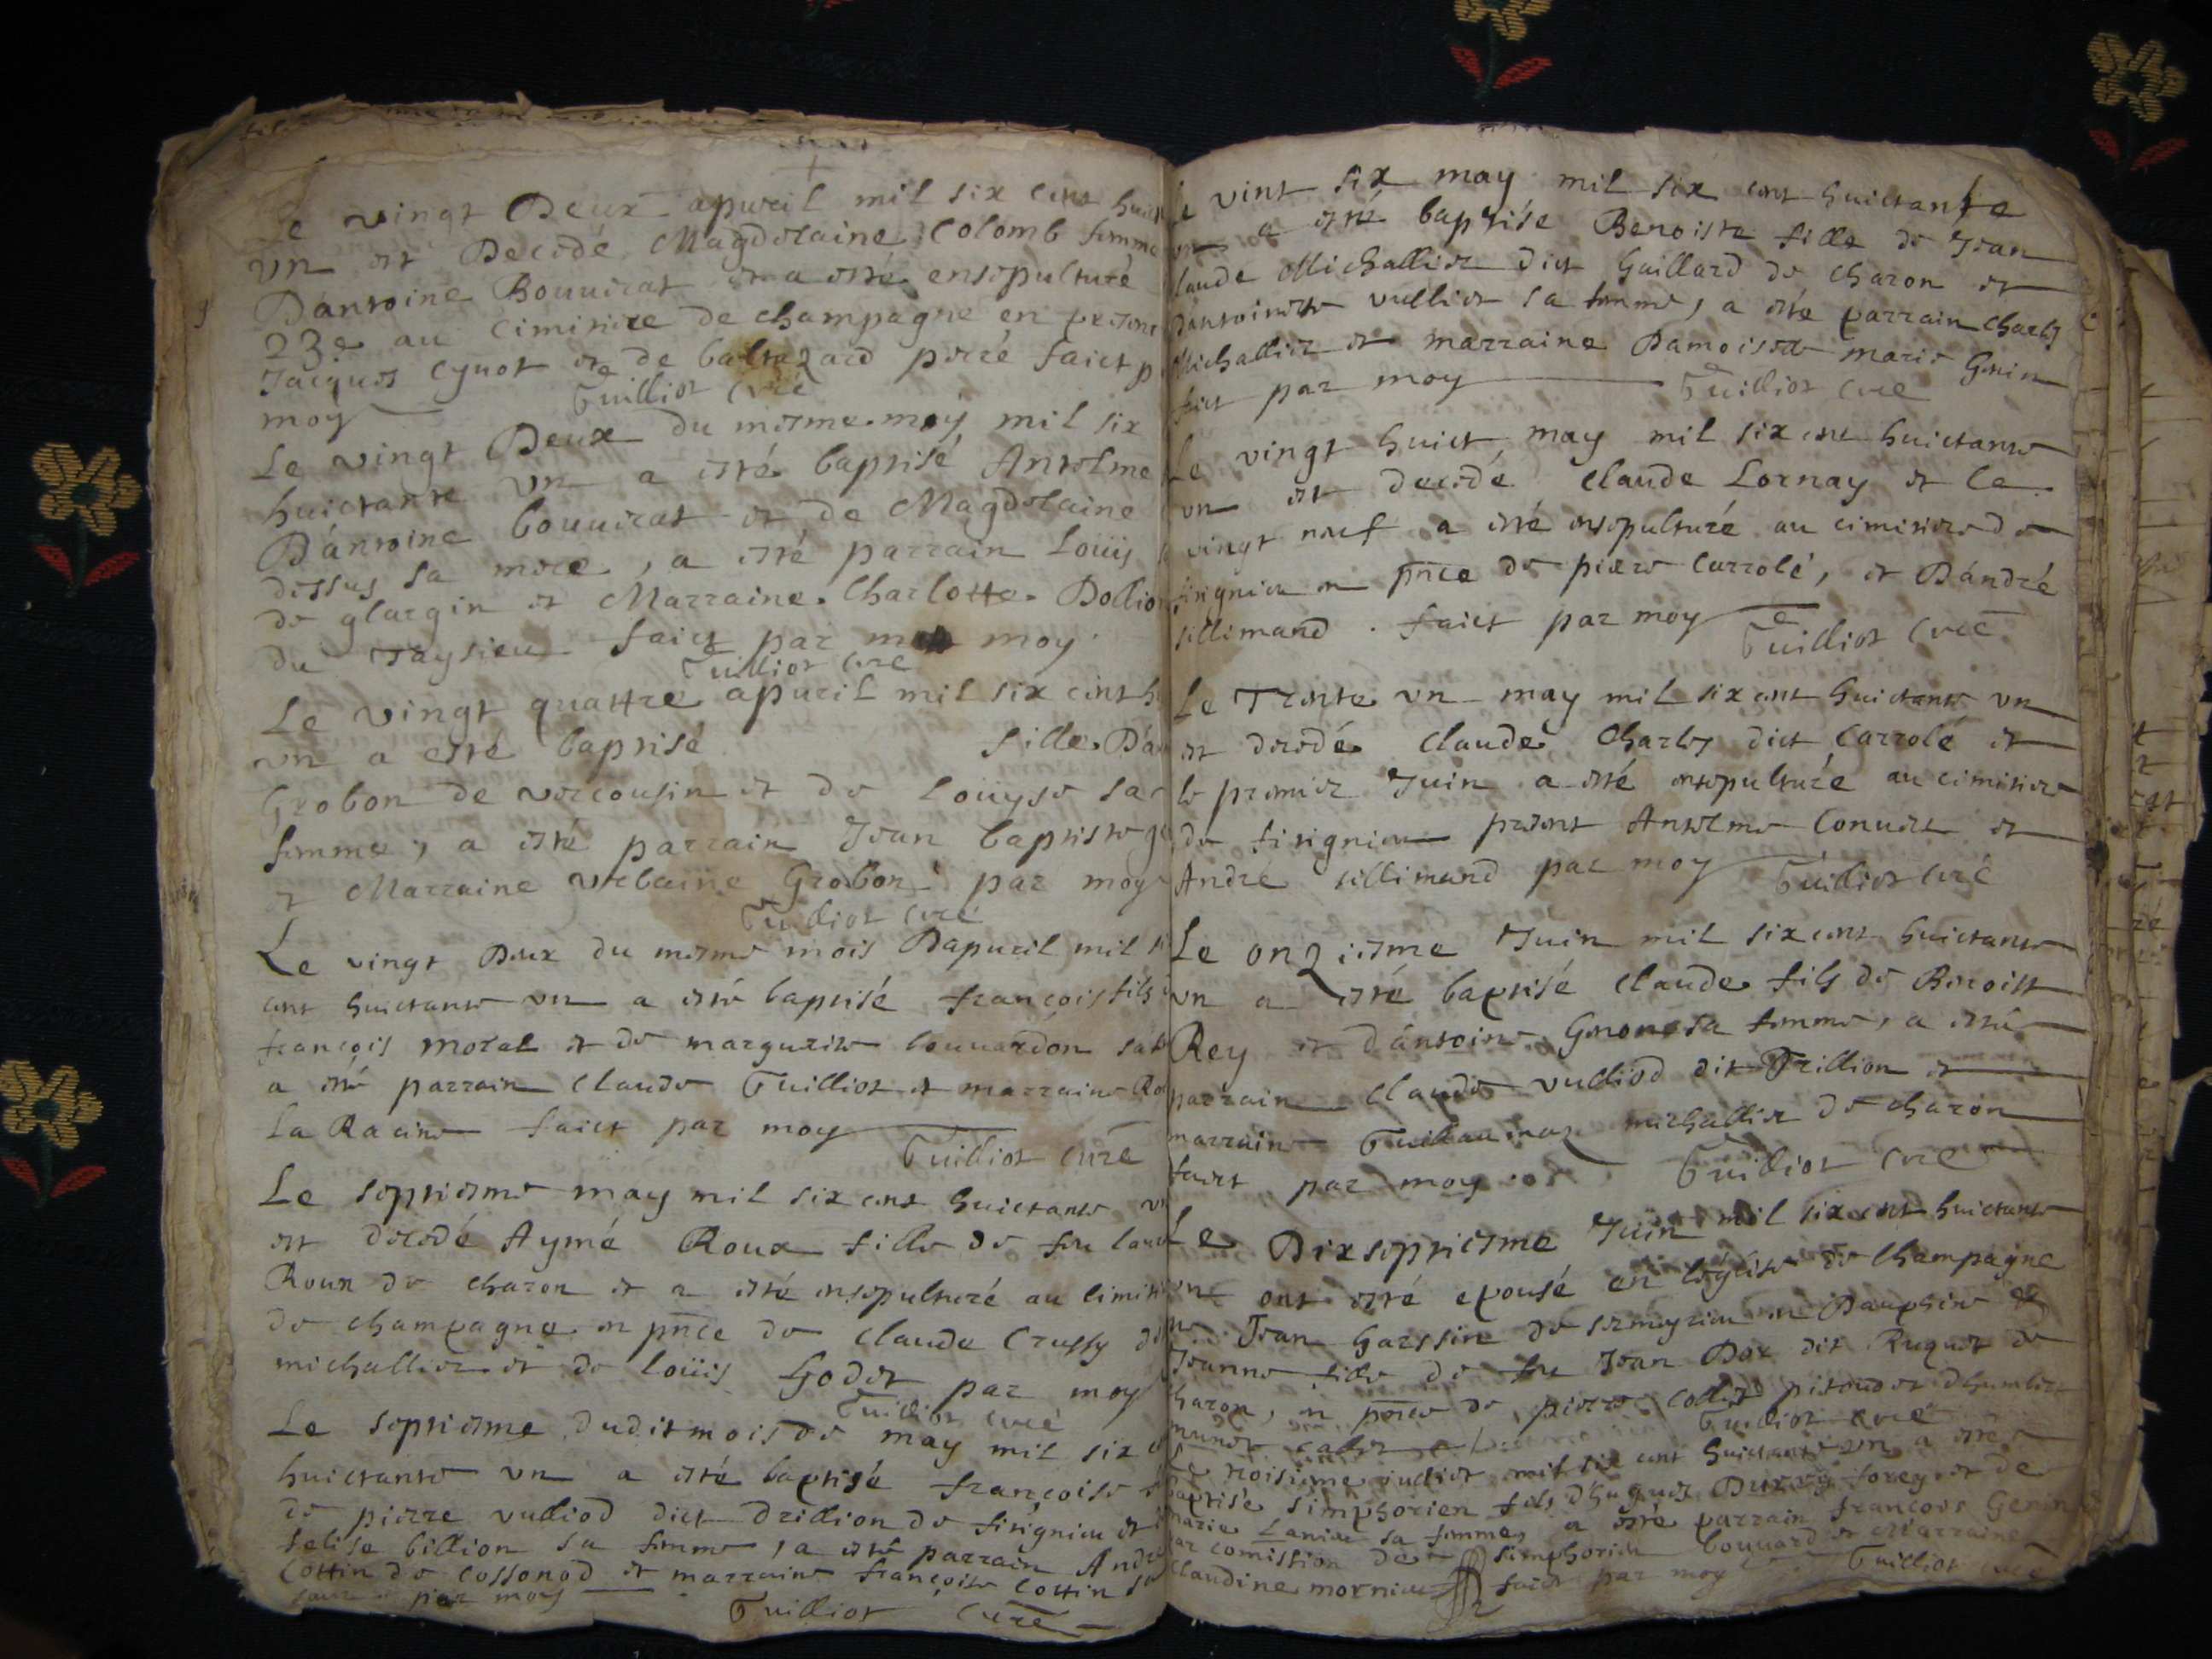 Le vingt Deux apuril mil six cens huict
vn est Decedé Magdelaine Colomb femme
Dántoine Bouuirat et a esté ensepulturé
23e au Cimitiere de champagne en presence
Jacques Cynot et de baltezard perré faict p
moy Guilliot Curé
Le vingt Deux du mesme moy mil six
huictante vn a esté baptisé Antelme
Dántoine bouuirat et de Magdelaine
dessus sa mere, a esté parrain Loüis
de glargin et Marraine Charlotte Dollion
du Taysieu faict par moy
Guilliot Curé
Le vingt quattre apuril mil six cens h
vn a esté baptisé fille Dán
Grobon de vercousin et de Loüyse sa
femme, a esté parrain Jean baptiste ge
et Marraine vrbaine Grobon par moy
Guilliot Curé
Le vingt Deux du mesme mois Dapuril mil si
cent huictante vn a esté baptisé françois fils
françois moral et de marguerite bouuardon sa f
a esté parrain Claude Guilliot et marraine Ro
La Racine faict par moy
Guilliot Curé
Le septiesme may mil six cent huictante vn
est decedé Aymé Roux fille de feu laud
Roux de charon et a esté ensepulturé au cimiti
de champagne en pñce de Claude Crussy di
michallier et de loüis Godet par moy
Guilliot Curé
Le septiesme dudit mois de may mil six c
huictante vn a esté baptisé françoise f
de pierre vulliod dict Drillion de fisignieu et
felise billion sa femme, a esté parrain André
Cottin de Cossonod et marraine françoise Cottin sa
par moy
Guilliot Curé
Le vint six may mil six cent huictante
vn a esté baptisée Benoiste fille de Jean
laude Michallier dict Gaillard de charon et
Dántoinette vullier sa femme, a esté parrain Charles
Michallier et marraine Damoiselle marie Genin
faict par moy Guilliot Curé
Le vingt huict may mil six cent huictante
vn est decedé Claude Lornay et le
vingt neuf a esté ensepulturé au cimitiere de
fisignieu en pñce de pierre Carrolé, et Dándré
sillimand. faict par moy
Guilliot Curé
Le Trente vn may mil six cent huictante vn
est decedé Claude Charles dict Carrolé et
le premier Juin a esté ensepulturée au cimitiere
de fisignieu present Antelme Conuert et
André sillimand par moy Guilliot Curé
Le onziesme Juin mil six cent huictante
vn a esté baptisé Claude fils de Benoist
Rey et dántoine Genone sa femme, a esté
parrain Claude vulliod dit Drillion et
marraine Guillaumaz michallier de charon
faict par moy Guilliot Curé
Le Dixseptiesme Juin mil six cent huictante
vn ont esté epousé en léglise de Champagne
Jean Garssin de sermerieu en Dauphine et
Jeanne fille de feu Jean Dox dit Ruquet de
charon, en pñce de pierre Collet
Guilliot Curé
Le troisiéme juillet mil six cent huictante vn a esté
baptisé simphorien fils d'hugues forey et de
marie Lanieu sa femme, a esté parrain françois Genin
par comission de simphorien bouuard et Marraine
Claudine mornieu faict par moy Guilliot Curé